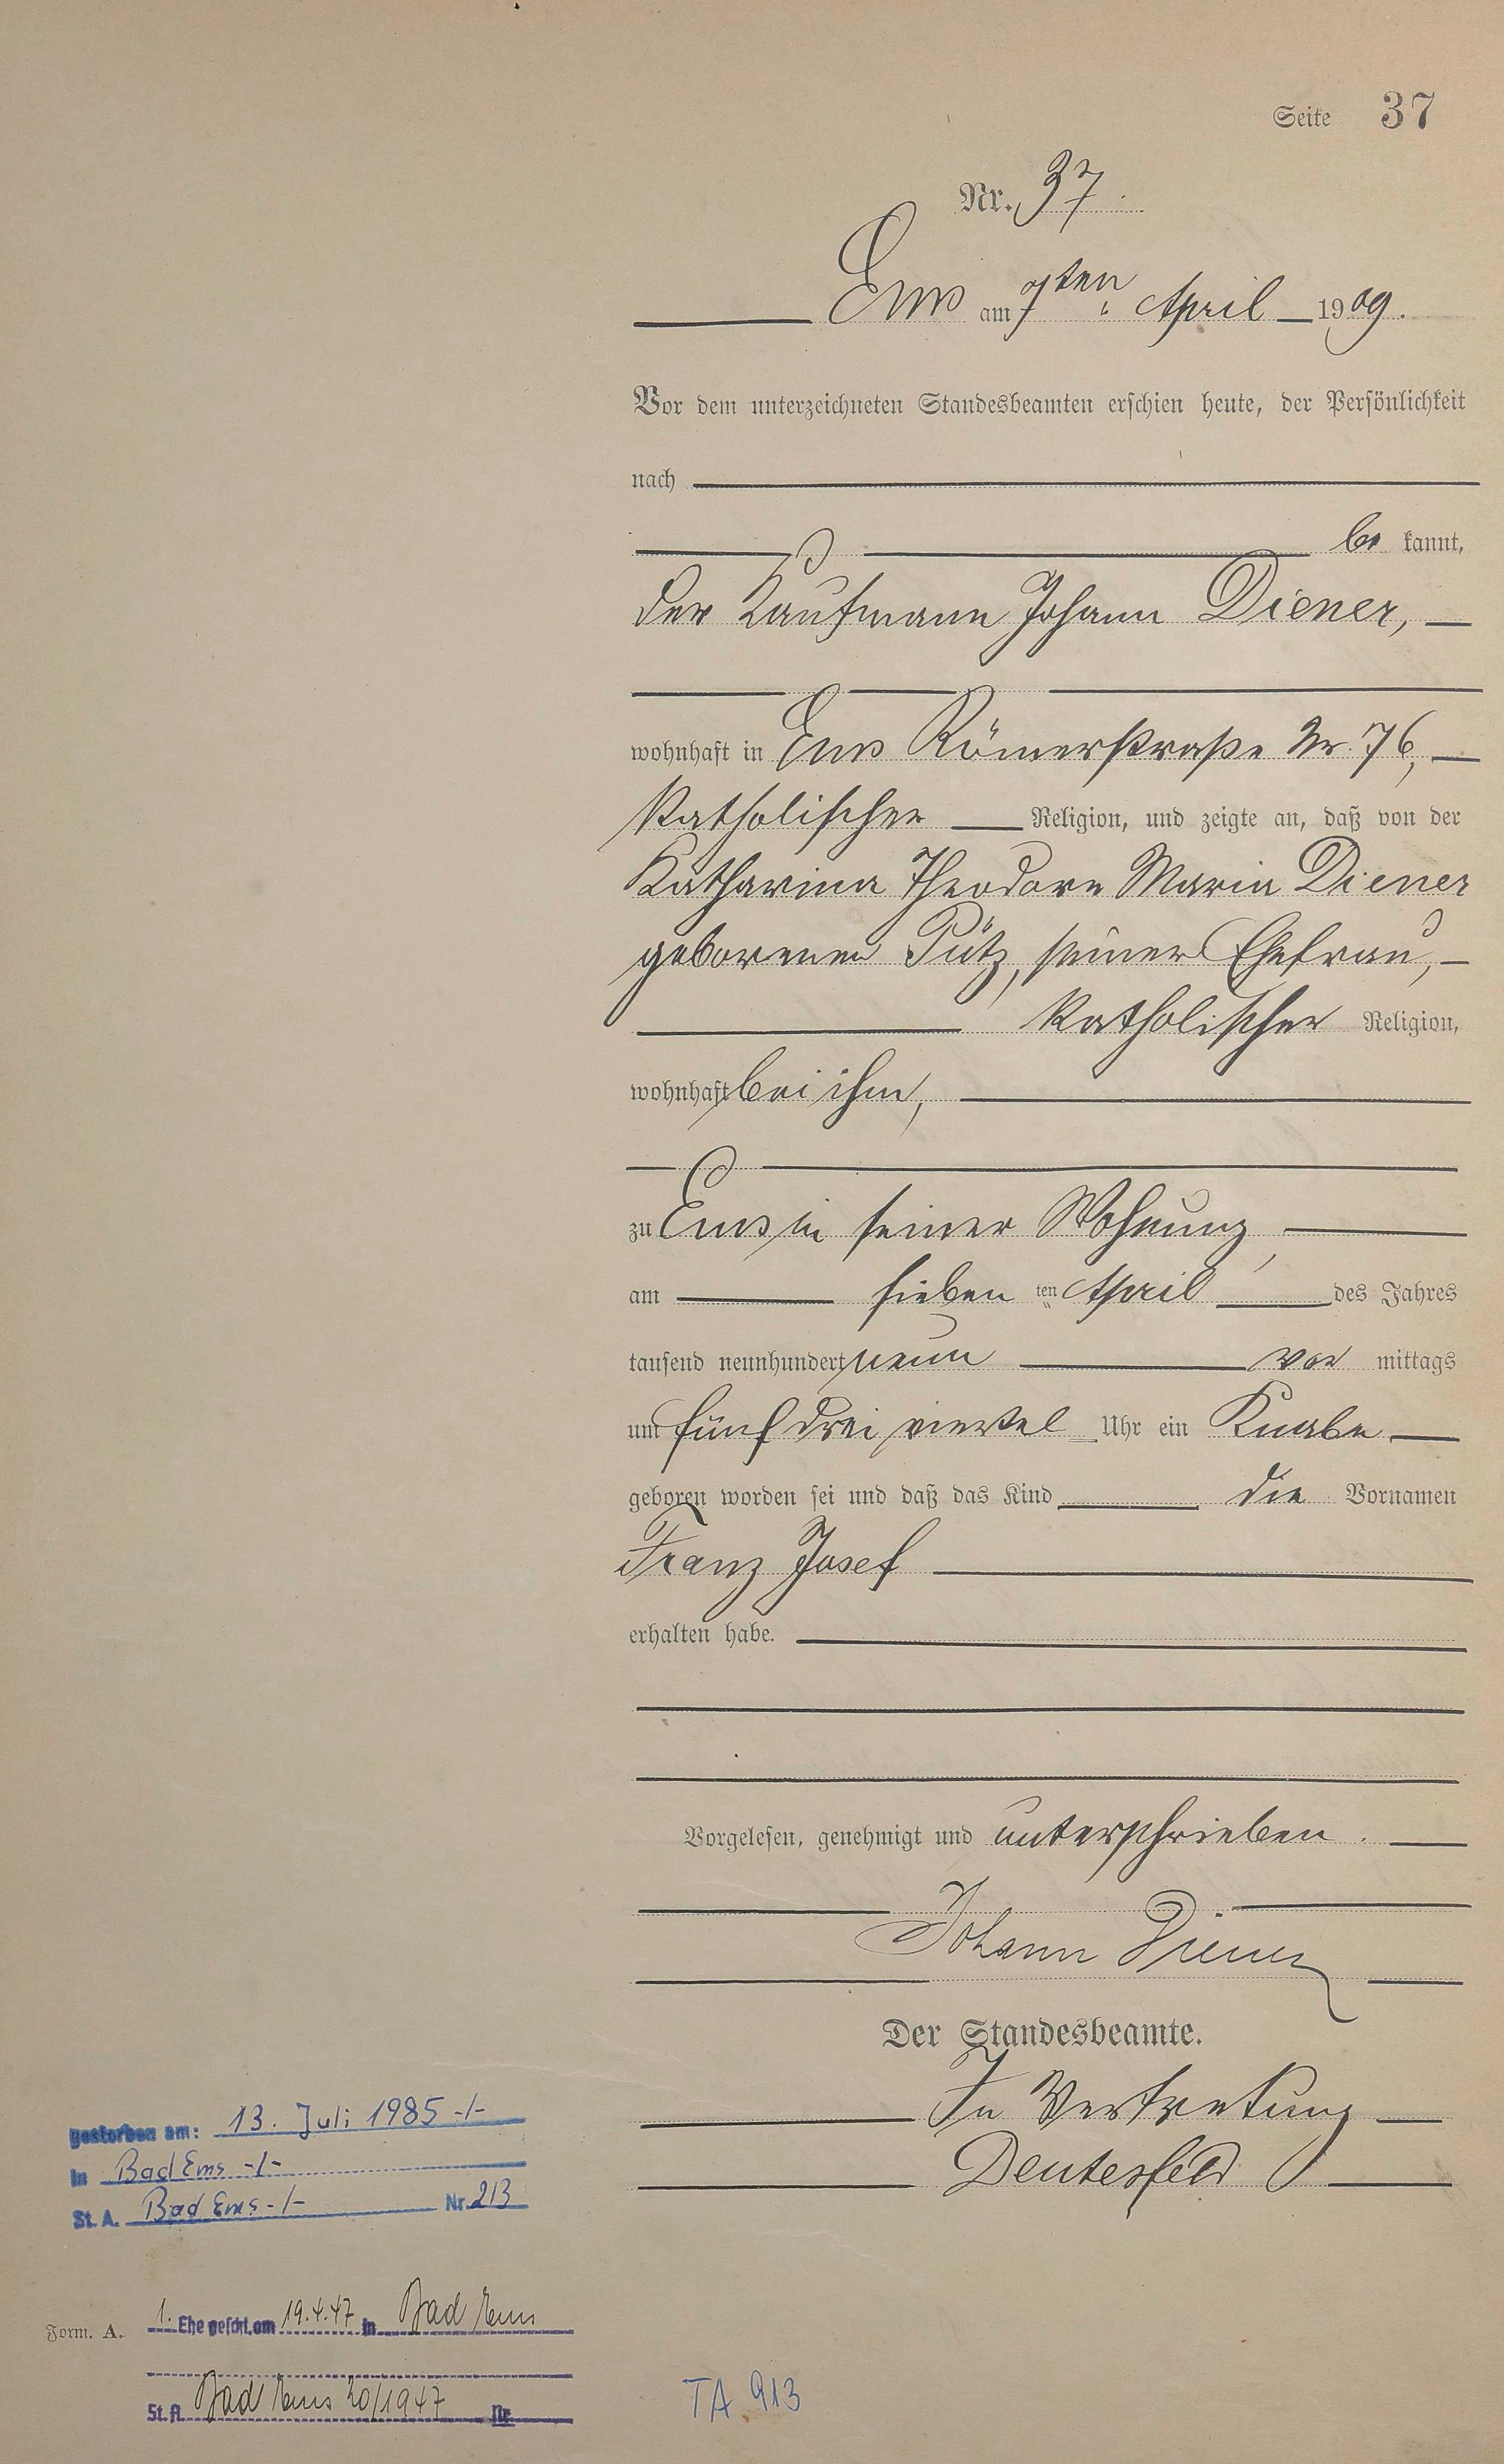 Seite 37
Nr. 37.
Ems am 7ten April 1909.
Vor dem unterzeichneten Standesbeamten erschien heute, der Persönlichkeit
nach
be kannt,
der Kaufmann Johann Diener,
wohnhaft in Ems Römerstraße Nr. 76,
katholischer Religion, und zeigte an, daß von der
Katharina Theodore Maria Diener
geborenen Pütz, seiner Ehefrau,
katholischer Religion,
wohnhaft bei ihm,
zu Ems in seiner Wohnung,
am sieben ten April des Jahres
tausend neunhundert neun vor mittags
um fünf drei viertel Uhr ein Knabe
geboren worden sei und daß das Kind die Vornamen
Franz Josef
erhalten habe.
Vorgelesen, genehmigt und unterschrieben.
Johann Diener
Der Standesbeamte.
In Vertretung
Deutesfeld
gestorben am: 13. Juli 1985 -/-
in Bad Ems -/-
St. A. Bad Ems -/- Nr. 213
Form. A. 1. Ehe geschl. am 19.4.47 in Bad Ems
St. A. Bad Ems 20/1947 Nr.
TA 913